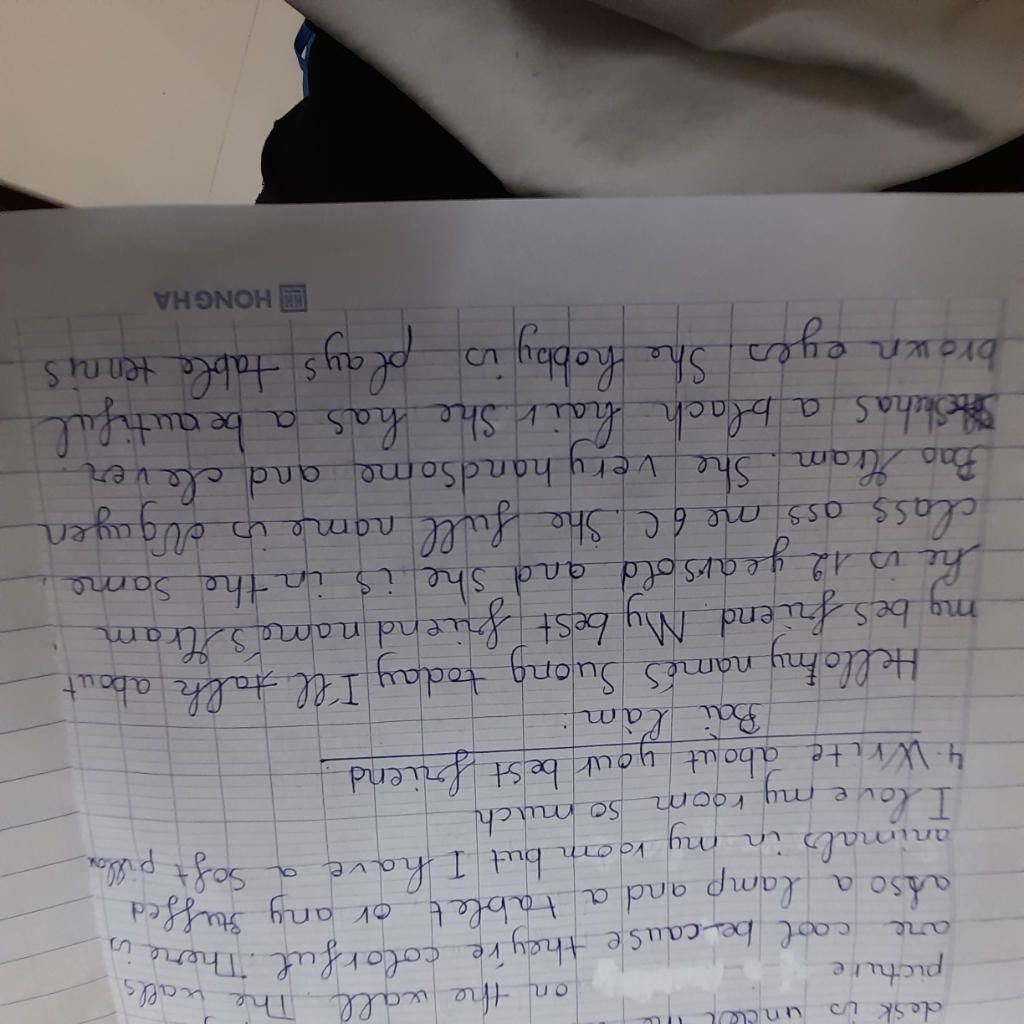 desk is under the
picture on the wall. The walls
are cool because they're colorful. There is
also a lamp and a tablet or any stuffed
animals in my room but I have a soft pillow
I love my room so much
4. Write about your best friend.
Bài làm:
Hello my name's Suong today I'll talk about
my bes friend. My best friend name's Tram
he is 12 yearsold and she is in the same
class ass me 6C. She full name is Nguyen
Bao Tram. She very handsome and clever.
She has a blach hair she has a beautiful
brown eyes she hobby is plays table tennis
HONGHA